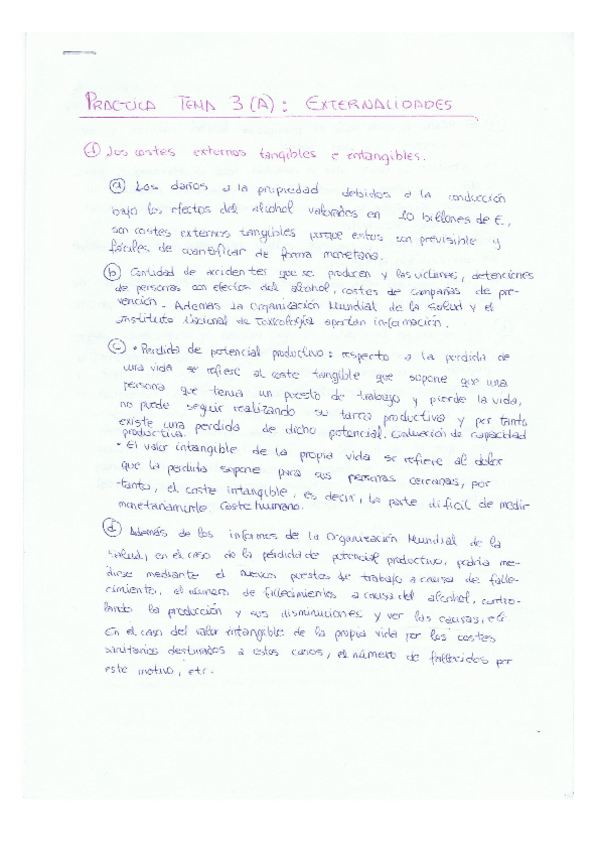 PRACTICA TEMA 3 (A): EXTERNALIDADES
① Los costes externos tangibles e intangibles.
ⓐ Los daños a la propiedad debidos a la conducción
bajo los efectos del alcohol valorados en 10 billones de €,
son costes externos tangibles porque estos son previsible y
fáciles de cuantificar de forma monetaria.
ⓑ Cantidad de accidentes que se producen y las víctimas, detenciones
de personas con efectos del alcohol, costes de campañas de pre-
vención. Además la Organización Mundial de la Salud y el
Instituto Nacional de Toxicología aportan información.
ⓒ • Perdida de potencial productivo: respecto a la perdida de
una vida se refiere al coste tangible que supone que una
persona que tenia un puesto de trabajo y pierde la vida,
no puede seguir realizando su tarea productiva y por tanto
existe una perdida de dicho potencial. Evaluación de capacidad
productiva.
• El valor intangible de la propia vida se refiere al dolor
que la perdida supone para sus personas cercanas, por
tanto, el coste intangible, es decir, la parte dificil de medir
monetariamente. Coste humano.
ⓓ Además de los informes de la Organización Mundial de la
Salud, en el caso de la pérdida de potencial productivo, podría me-
dirse mediante el nuevos puestos de trabajo a causa de falle-
cimiento, el número de fallecimientos a causa del alcohol, contro-
lando la producción y sus disminuciones y ver las causas, etc
En el caso del valor intangible de la propia vida por los costes
sanitarios destinados a estos casos, el número de fallecidos por
este motivo, etc.